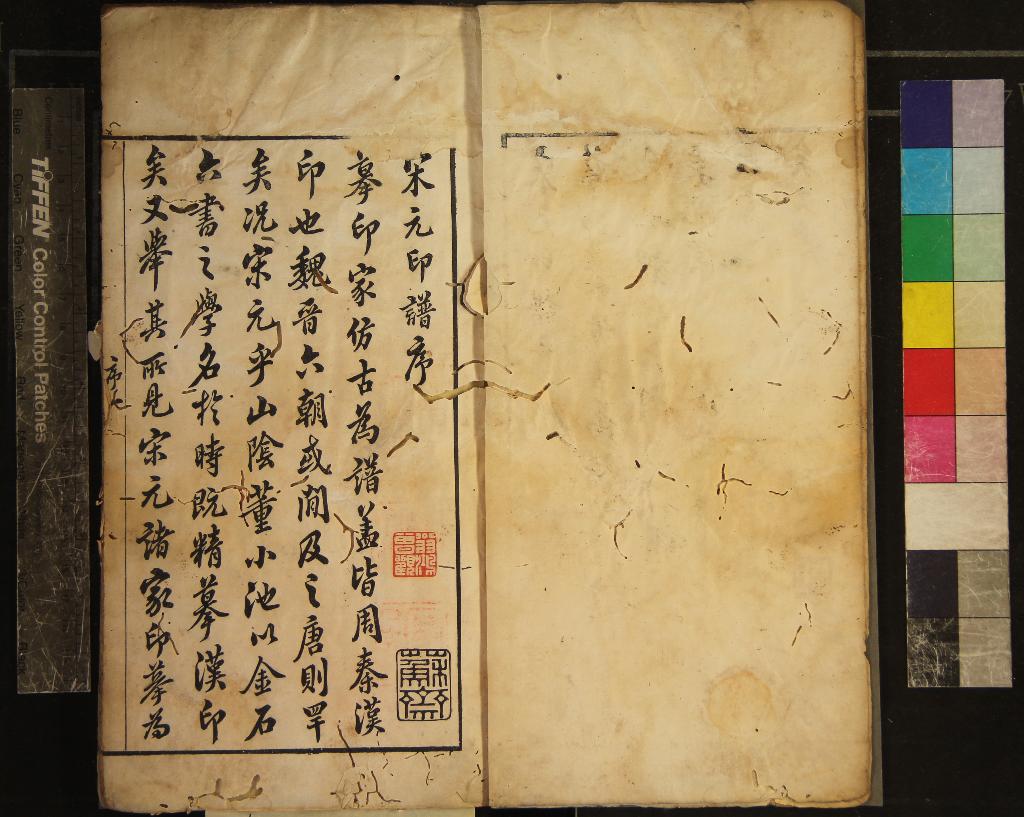 宋元印譜序
摹印家仿古為譜蓋皆周秦漢
印也魏晉六朝或間及之唐則罕
矣况宋元乎山陰董小池以金石
六書之學名於時既精摹漢印
矣又舉其所見宋元諸家印摹為
序
蘇齋
TIFFEN Color Control Patches
Blue Cyan Green Yellow